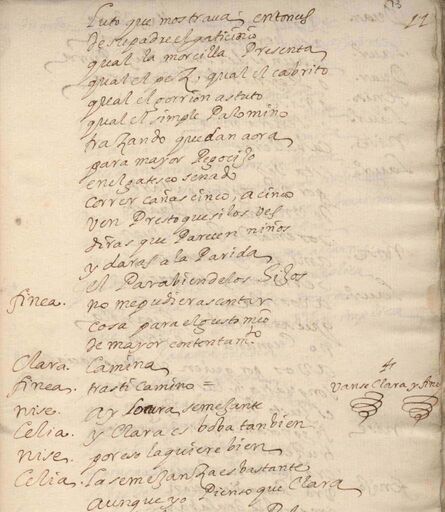 luto que mostrava, entonces
de su padre el gaticidio
qual la morcilla Presenta
qual el pez, qual el cabrito
qual el gorrion astuto
qual el simple Palomino
trazando quedan aora
para mayor Regocijo
en el gatesco senado
correr cañas cinco, a cinco
ven Presto que si los ves
diras que Parecen niños
y daras a la Parida
el Parabien de los hijos
finea. no me pudieras contar
cosa para el gusto mio
de mayor contentamto
Clara. Camina
finea. tras ti camino =
Vanse Clara y fine
nise. ay semejante
Celia. y Clara es boba tanbien
nise. por eso la quiere bien
Celia. la semejanza es bastante
aunque yo Pienso que Clara